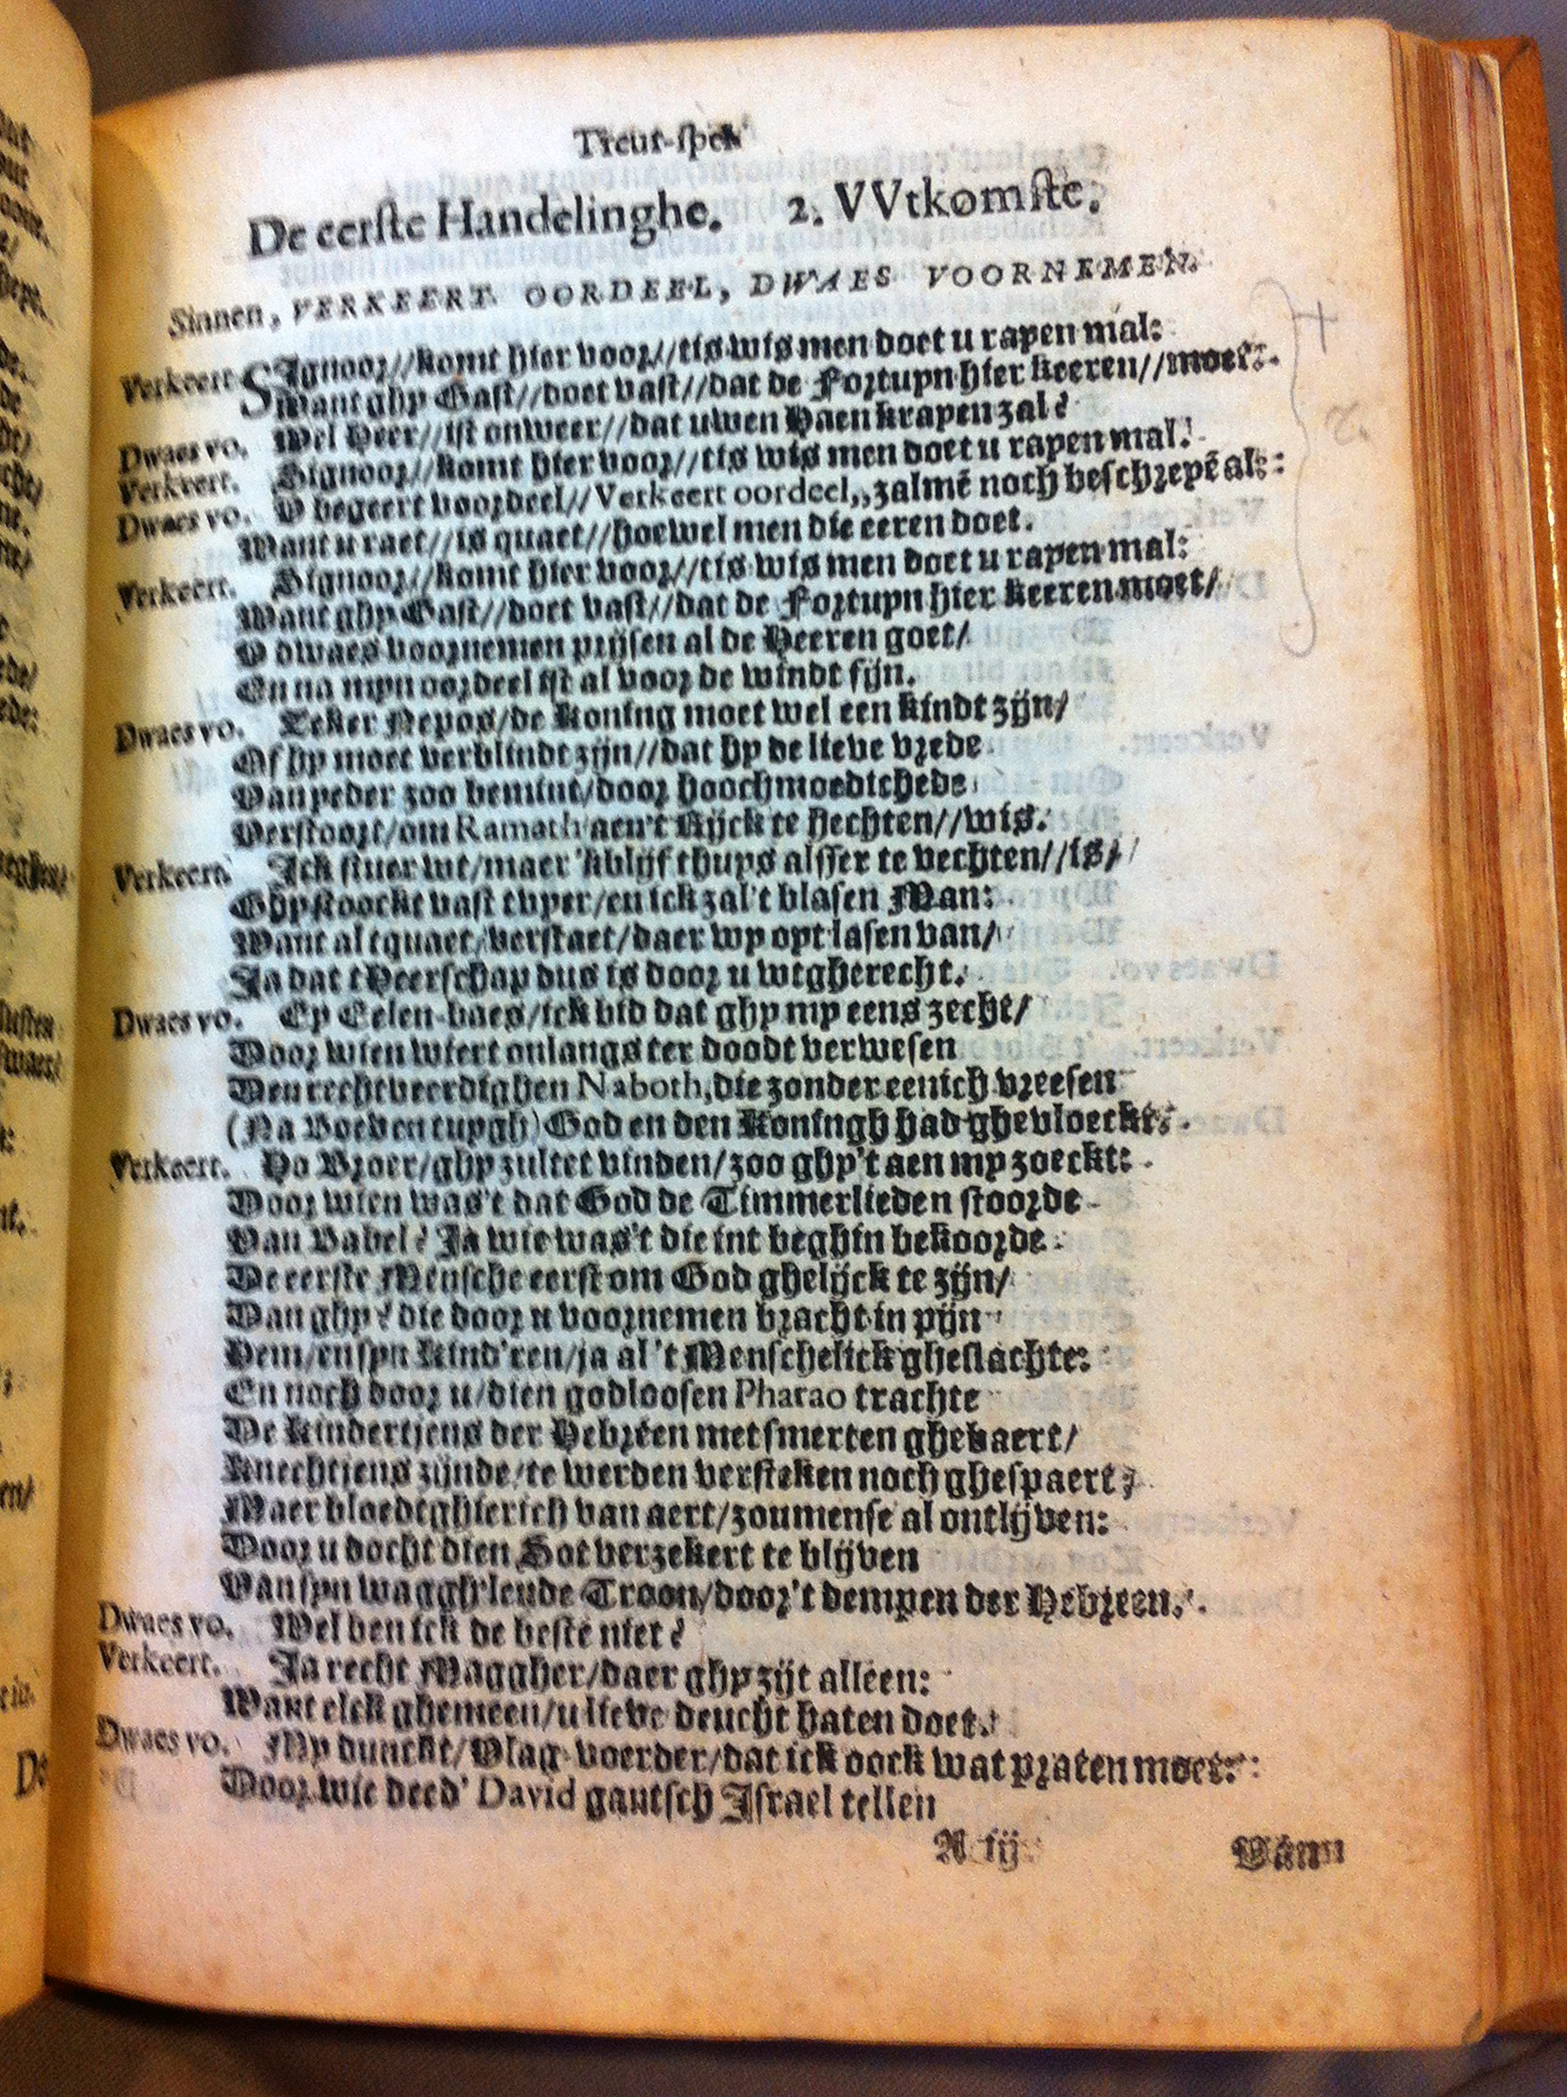 Treur-spel
De eerste Handelinghe. 2. VVtkomste.
Sinnen, VERKEERT OORDEEL, DWAES VOORNEMEN.
Verkeert. SIgnoor//komt hier voor//tis wis men doet u rapen mal:
Want ghy Gast//doet vast//dat de Fortuyn hier keeren//moet.
Dwaes vo. Wel Heer//ist onweer//dat uwen Haen krayen zal?
Verkeert. Signoor//komt hier voor//tis wis men doet u rapen mal.
Dwaes vo. V begeert voordeel//Verkeert oordeel,,zalmē noch beschreyē al:
Want u raet//is quaet//hoewel men die eeren doet.
Verkeert. Signoor//komt hier voor//tis wis men doet u rapen mal:
Want ghy Gast//doet vast//dat de Fortuyn hier keeren moet/
V dwaes voornemen prijsen al de Heeren goet/
En na myn oordeel ist al voor de windt sijn.
Dwaes vo. Zeker Nepos/de Koning moet wel een kindt zijn/
Of hy moet verblindt zijn//dat hy de lieve vrede
Van yeder zoo bemint/door hoochmoedichede
Verstoort/om Ramath aen't Rijck te hechten//wis.
Verkeert. Ick stuer wt/maer 'kblijf thuys alsser te vechten//is/
Ghy stoockt vast tvyer/en ick zal't blasen Man:
Want al tquaet/verstaet/daer wy opt lasen van/
Ja dat tHeerschap dus is door u wtgherecht.
Dwaes vo. Ey Eelen baes/ick bid dat ghy my eens zecht/
Door wien wiert onlangs ter doodt verwesen
Den rechtveerdighen Naboth, die zonder eenich vreesen
(Na Boeven tuygh) God en den Koningh had ghevloeckt.
Verkeert. Ho Broer/ghy zultet vinden/zoo ghy't aen my zoeckt:
Door wien was't dat God de Timmerlieden stoorde
Van Babel? Ja wie was't die int beghin bekoorde
De eerste Mensche eerst om God ghelijck te zijn/
Dan ghy? die door u voornemen bracht in pijn
Hem/en syn kind'ren/ja al 't Menschelick gheslachte:
En noch door u/dien godloosen Pharao trachte
De kindertjens der Hebreen met smerten ghebaert/
Knechtjens zijnde/te werden versteken noch ghespaert;
Maer bloedtghierich van aert/zoumense al ontlijven:
Door u docht dien Sot verzekert te blijven
Van syn waggh'lende Troon/door't dempen der Hebreen.
Dwaes vo. Wel ben ick de beste niet?
Verkeert. Ja recht Maggher/daer ghy zijt alleen:
Want elck ghemeen/u lieve deucht haten doet.
Dwaes vo. My dunckt/Vlag-voerder/dat ick oock wat praten moet:
Door wie deed' David gantsch Israel tellen
A iij
Dann